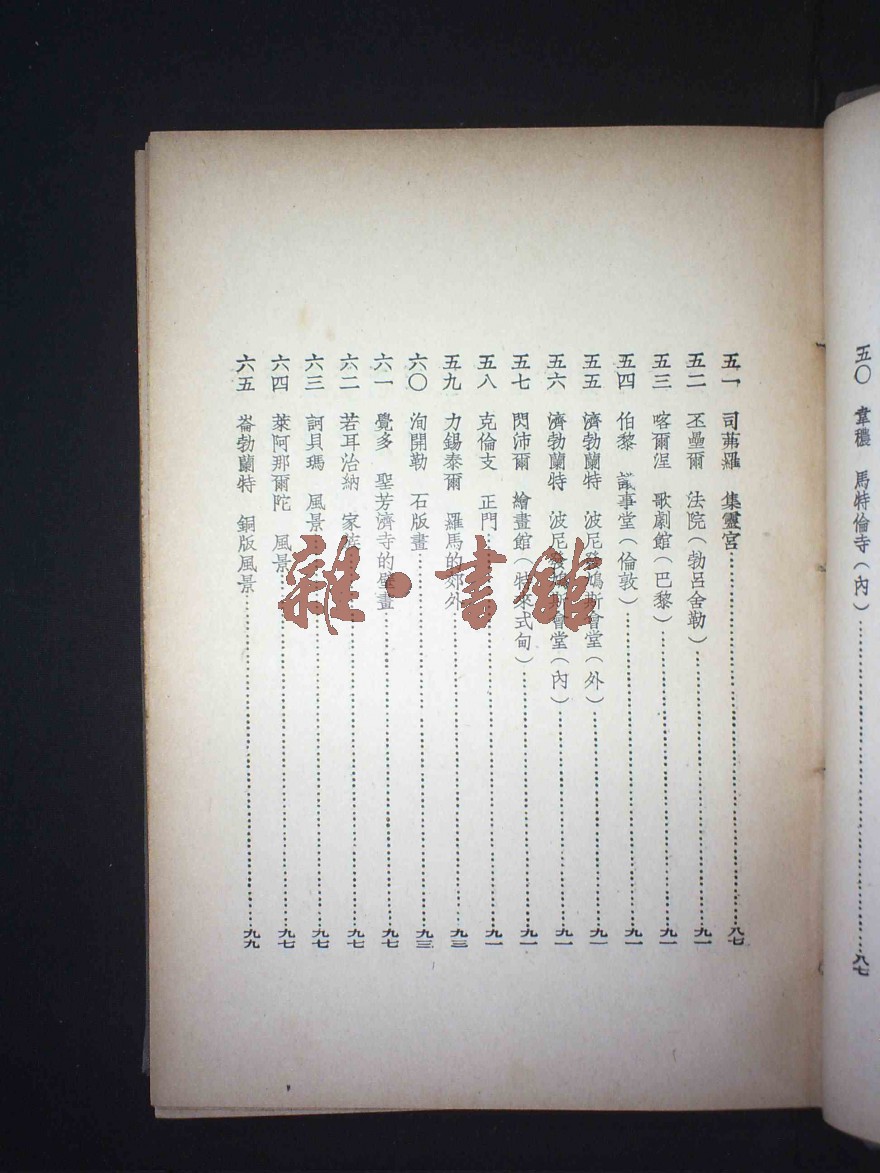 五〇 韋穠 馬特倫寺（內）……八七
五一 司茀羅 集靈宮……八七
五二 丕壘爾 法院（勃呂舍勒）……九一
五三 喀爾涅 歌劇館（巴黎）……九一
五四 伯黎 議事堂（倫敦）……九一
五五 濟勃蘭特 波尼發鳩斯會堂（外）……九一
五六 濟勃蘭特 波尼發鳩斯會堂（內）……九一
五七 閃沛爾 繪畫館（特來式甸）……九一
五八 克倫支 正門……九一
五九 力錫泰爾 羅馬的郊外……九三
六〇 洵開勒 石版畫……九三
六一 覺多 聖芳濟寺的壁畫……九七
六二 若耳治納 家族……九七
六三 訶貝瑪 風景……九七
六四 萊阿那爾陀 風景……九七
六五 崙勃蘭特 銅版風景……九九
雜·書館